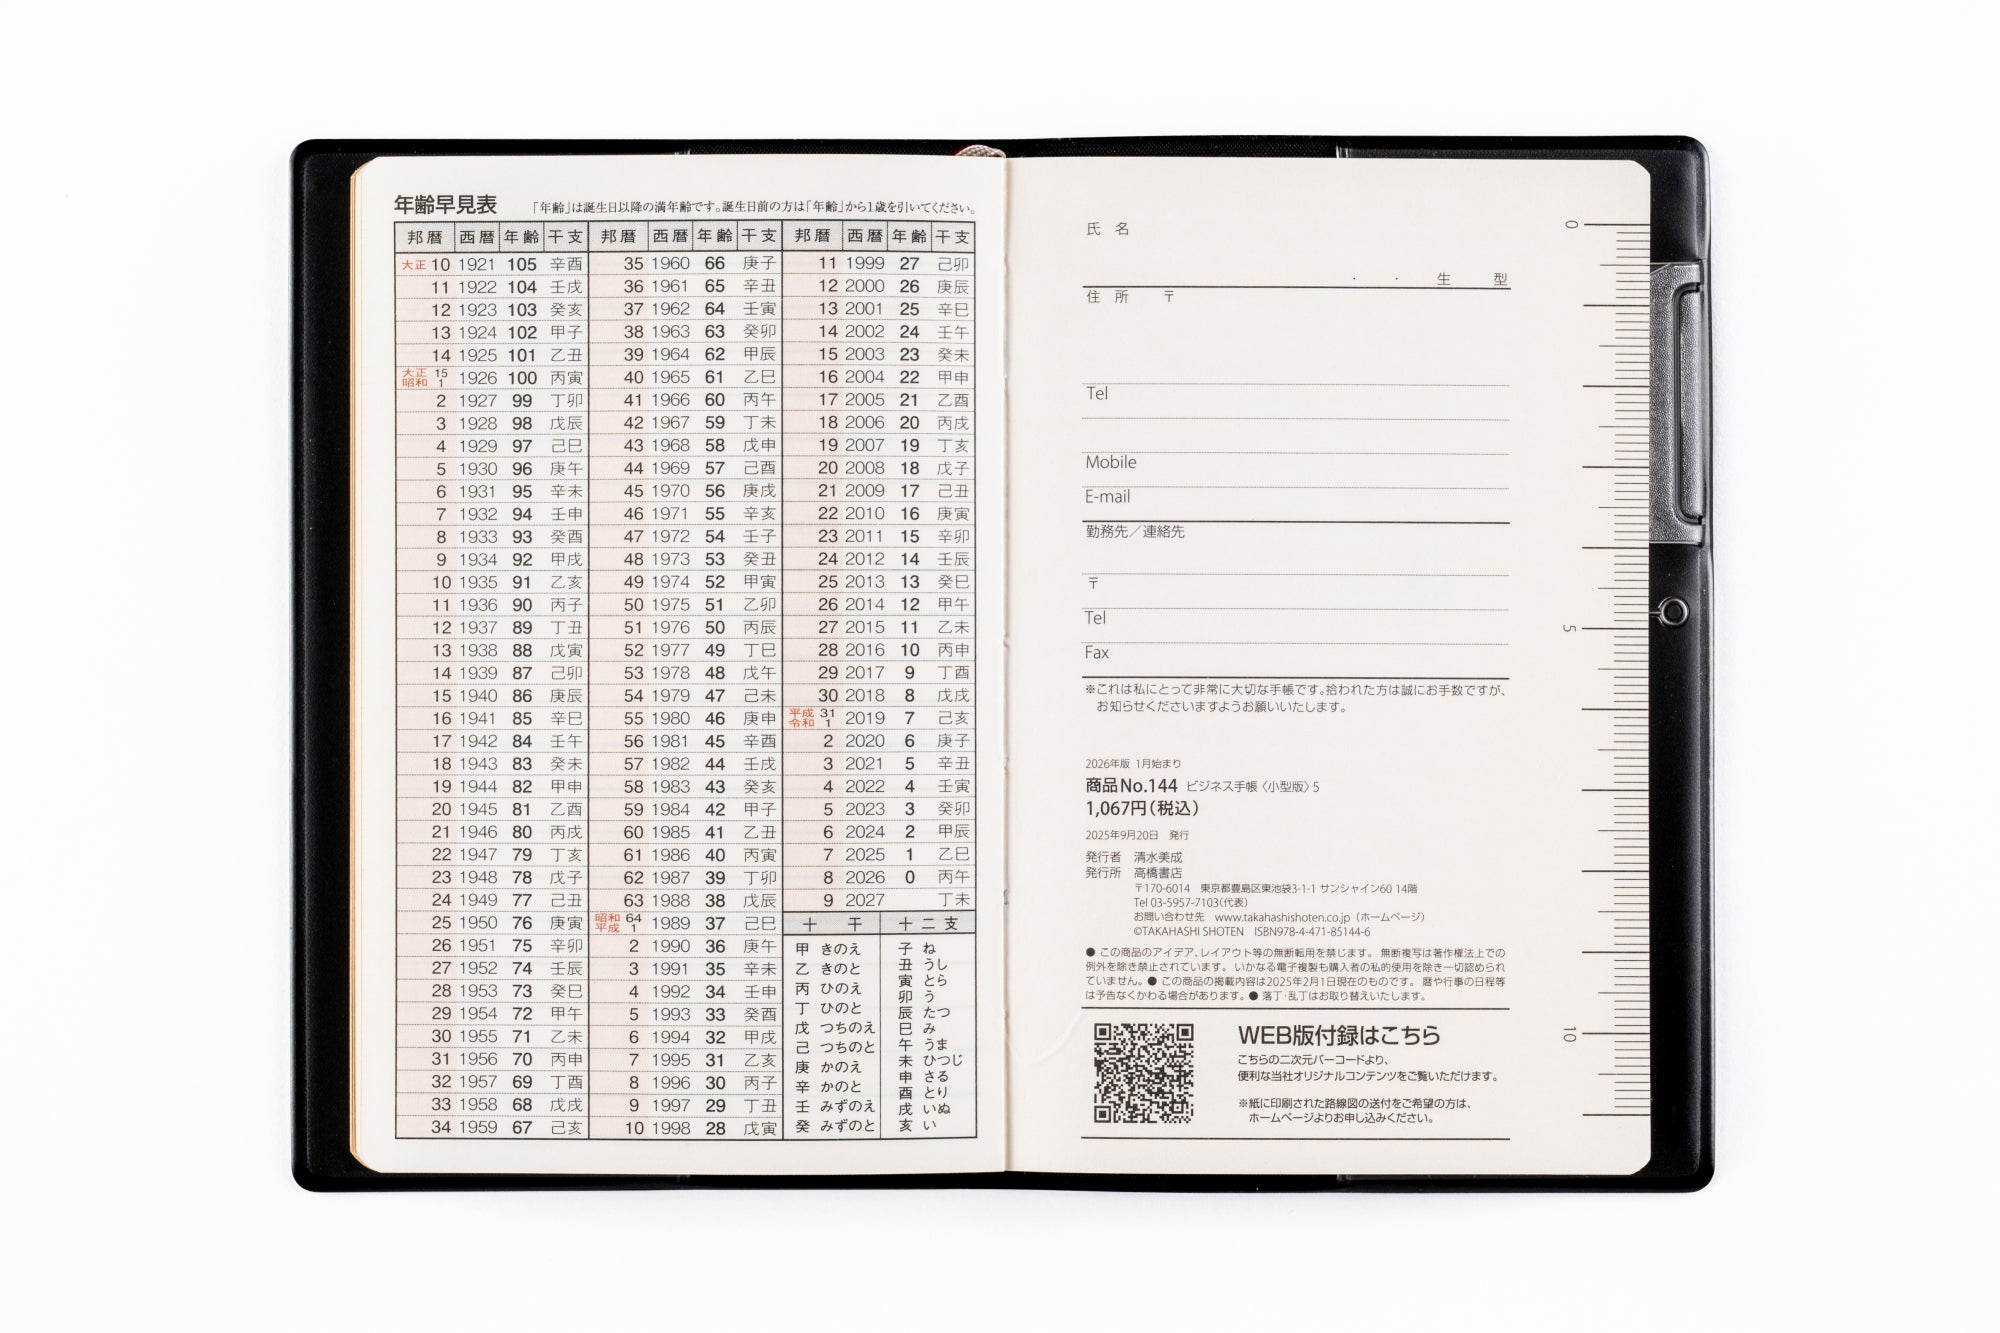 年齢早見表 「年齢」は誕生日以降の満年齢です。誕生日前の方は「年齢」から1歳を引いてください。
邦暦 西暦 年齢 干支 邦暦 西暦 年齢 干支 邦暦 西暦 年齢 干支
大正 10 1921 105 辛酉 35 1960 66 庚子 11 1999 27 己卯
11 1922 104 壬戌 36 1961 65 辛丑 12 2000 26 庚辰
12 1923 103 癸亥 37 1962 64 壬寅 13 2001 25 辛巳
13 1924 102 甲子 38 1963 63 癸卯 14 2002 24 壬午
14 1925 101 乙丑 39 1964 62 甲辰 15 2003 23 癸未
大正 15 昭和 1 1926 100 丙寅 40 1965 61 乙巳 16 2004 22 甲申
2 1927 99 丁卯 41 1966 60 丙午 17 2005 21 乙酉
3 1928 98 戊辰 42 1967 59 丁未 18 2006 20 丙戌
4 1929 97 己巳 43 1968 58 戊申 19 2007 19 丁亥
5 1930 96 庚午 44 1969 57 己酉 20 2008 18 戊子
6 1931 95 辛未 45 1970 56 庚戌 21 2009 17 己丑
7 1932 94 壬申 46 1971 55 辛亥 22 2010 16 庚寅
8 1933 93 癸酉 47 1972 54 壬子 23 2011 15 辛卯
9 1934 92 甲戌 48 1973 53 癸丑 24 2012 14 壬辰
10 1935 91 乙亥 49 1974 52 甲寅 25 2013 13 癸巳
11 1936 90 丙子 50 1975 51 乙卯 26 2014 12 甲午
12 1937 89 丁丑 51 1976 50 丙辰 27 2015 11 乙未
13 1938 88 戊寅 52 1977 49 丁巳 28 2016 10 丙申
14 1939 87 己卯 53 1978 48 戊午 29 2017 9 丁酉
15 1940 86 庚辰 54 1979 47 己未 30 2018 8 戊戌
16 1941 85 辛巳 55 1980 46 庚申 平成 31 令和 1 2019 7 己亥
17 1942 84 壬午 56 1981 45 辛酉 2 2020 6 庚子
18 1943 83 癸未 57 1982 44 壬戌 3 2021 5 辛丑
19 1944 82 甲申 58 1983 43 癸亥 4 2022 4 壬寅
20 1945 81 乙酉 59 1984 42 甲子 5 2023 3 癸卯
21 1946 80 丙戌 60 1985 41 乙丑 6 2024 2 甲辰
22 1947 79 丁亥 61 1986 40 丙寅 7 2025 1 乙巳
23 1948 78 戊子 62 1987 39 丁卯 8 2026 0 丙午
24 1949 77 己丑 63 1988 38 戊辰 9 2027 丁未
25 1950 76 庚寅 昭和 64 平成 1 1989 37 己巳
26 1951 75 辛卯 2 1990 36 庚午
27 1952 74 壬辰 3 1991 35 辛未
28 1953 73 癸巳 4 1992 34 壬申
29 1954 72 甲午 5 1993 33 癸酉
30 1955 71 乙未 6 1994 32 甲戌
31 1956 70 丙申 7 1995 31 乙亥
32 1957 69 丁酉 8 1996 30 丙子
33 1958 68 戊戌 9 1997 29 丁丑
34 1959 67 己亥 10 1998 28 戊寅
十干
甲 きのえ
乙 きのと
丙 ひのえ
丁 ひのと
戊 つちのえ
己 つちのと
庚 かのえ
辛 かのと
壬 みずのえ
癸 みずのと
十二支
子 ね
丑 うし
寅 とら
卯 う
辰 たつ
巳 み
午 うま
未 ひつじ
申 さる
酉 とり
戌 いぬ
亥 い
氏名
・ ・ 生 型
住所 〒
Tel
Mobile
E-mail
勤務先／連絡先
〒
Tel
Fax
※これは私にとって非常に大切な手帳です。拾われた方は誠にお手数ですが、
お知らせくださいますようお願いいたします。
2026年版 1月始まり
商品No.144 ビジネス手帳〈小型版〉5
1,067円（税込）
2025年9月20日 発行
発行者 清水美成
発行所 高橋書店
〒170-6014 東京都豊島区東池袋3-1-1 サンシャイン60 14階
Tel 03-5957-7103（代表）
お問い合わせ先 www.takahashishoten.co.jp（ホームページ）
©TAKAHASHI SHOTEN ISBN978-4-471-85144-6
● この商品のアイデア、レイアウト等の無断転用を禁じます。 無断複写は著作権法上での
例外を除き禁止されています。 いかなる電子複製も購入者の私的使用を除き一切認められ
ていません。● この商品の掲載内容は2025年2月1日現在のものです。 暦や行事の日程等
は予告なくかわる場合があります。● 落丁・乱丁はお取り替えいたします。
WEB版付録はこちら
こちらの二次元バーコードより、
便利な当社オリジナルコンテンツをご覧いただけます。
※紙に印刷された路線図の送付をご希望の方は、
ホームページよりお申し込みください。
0
5
10